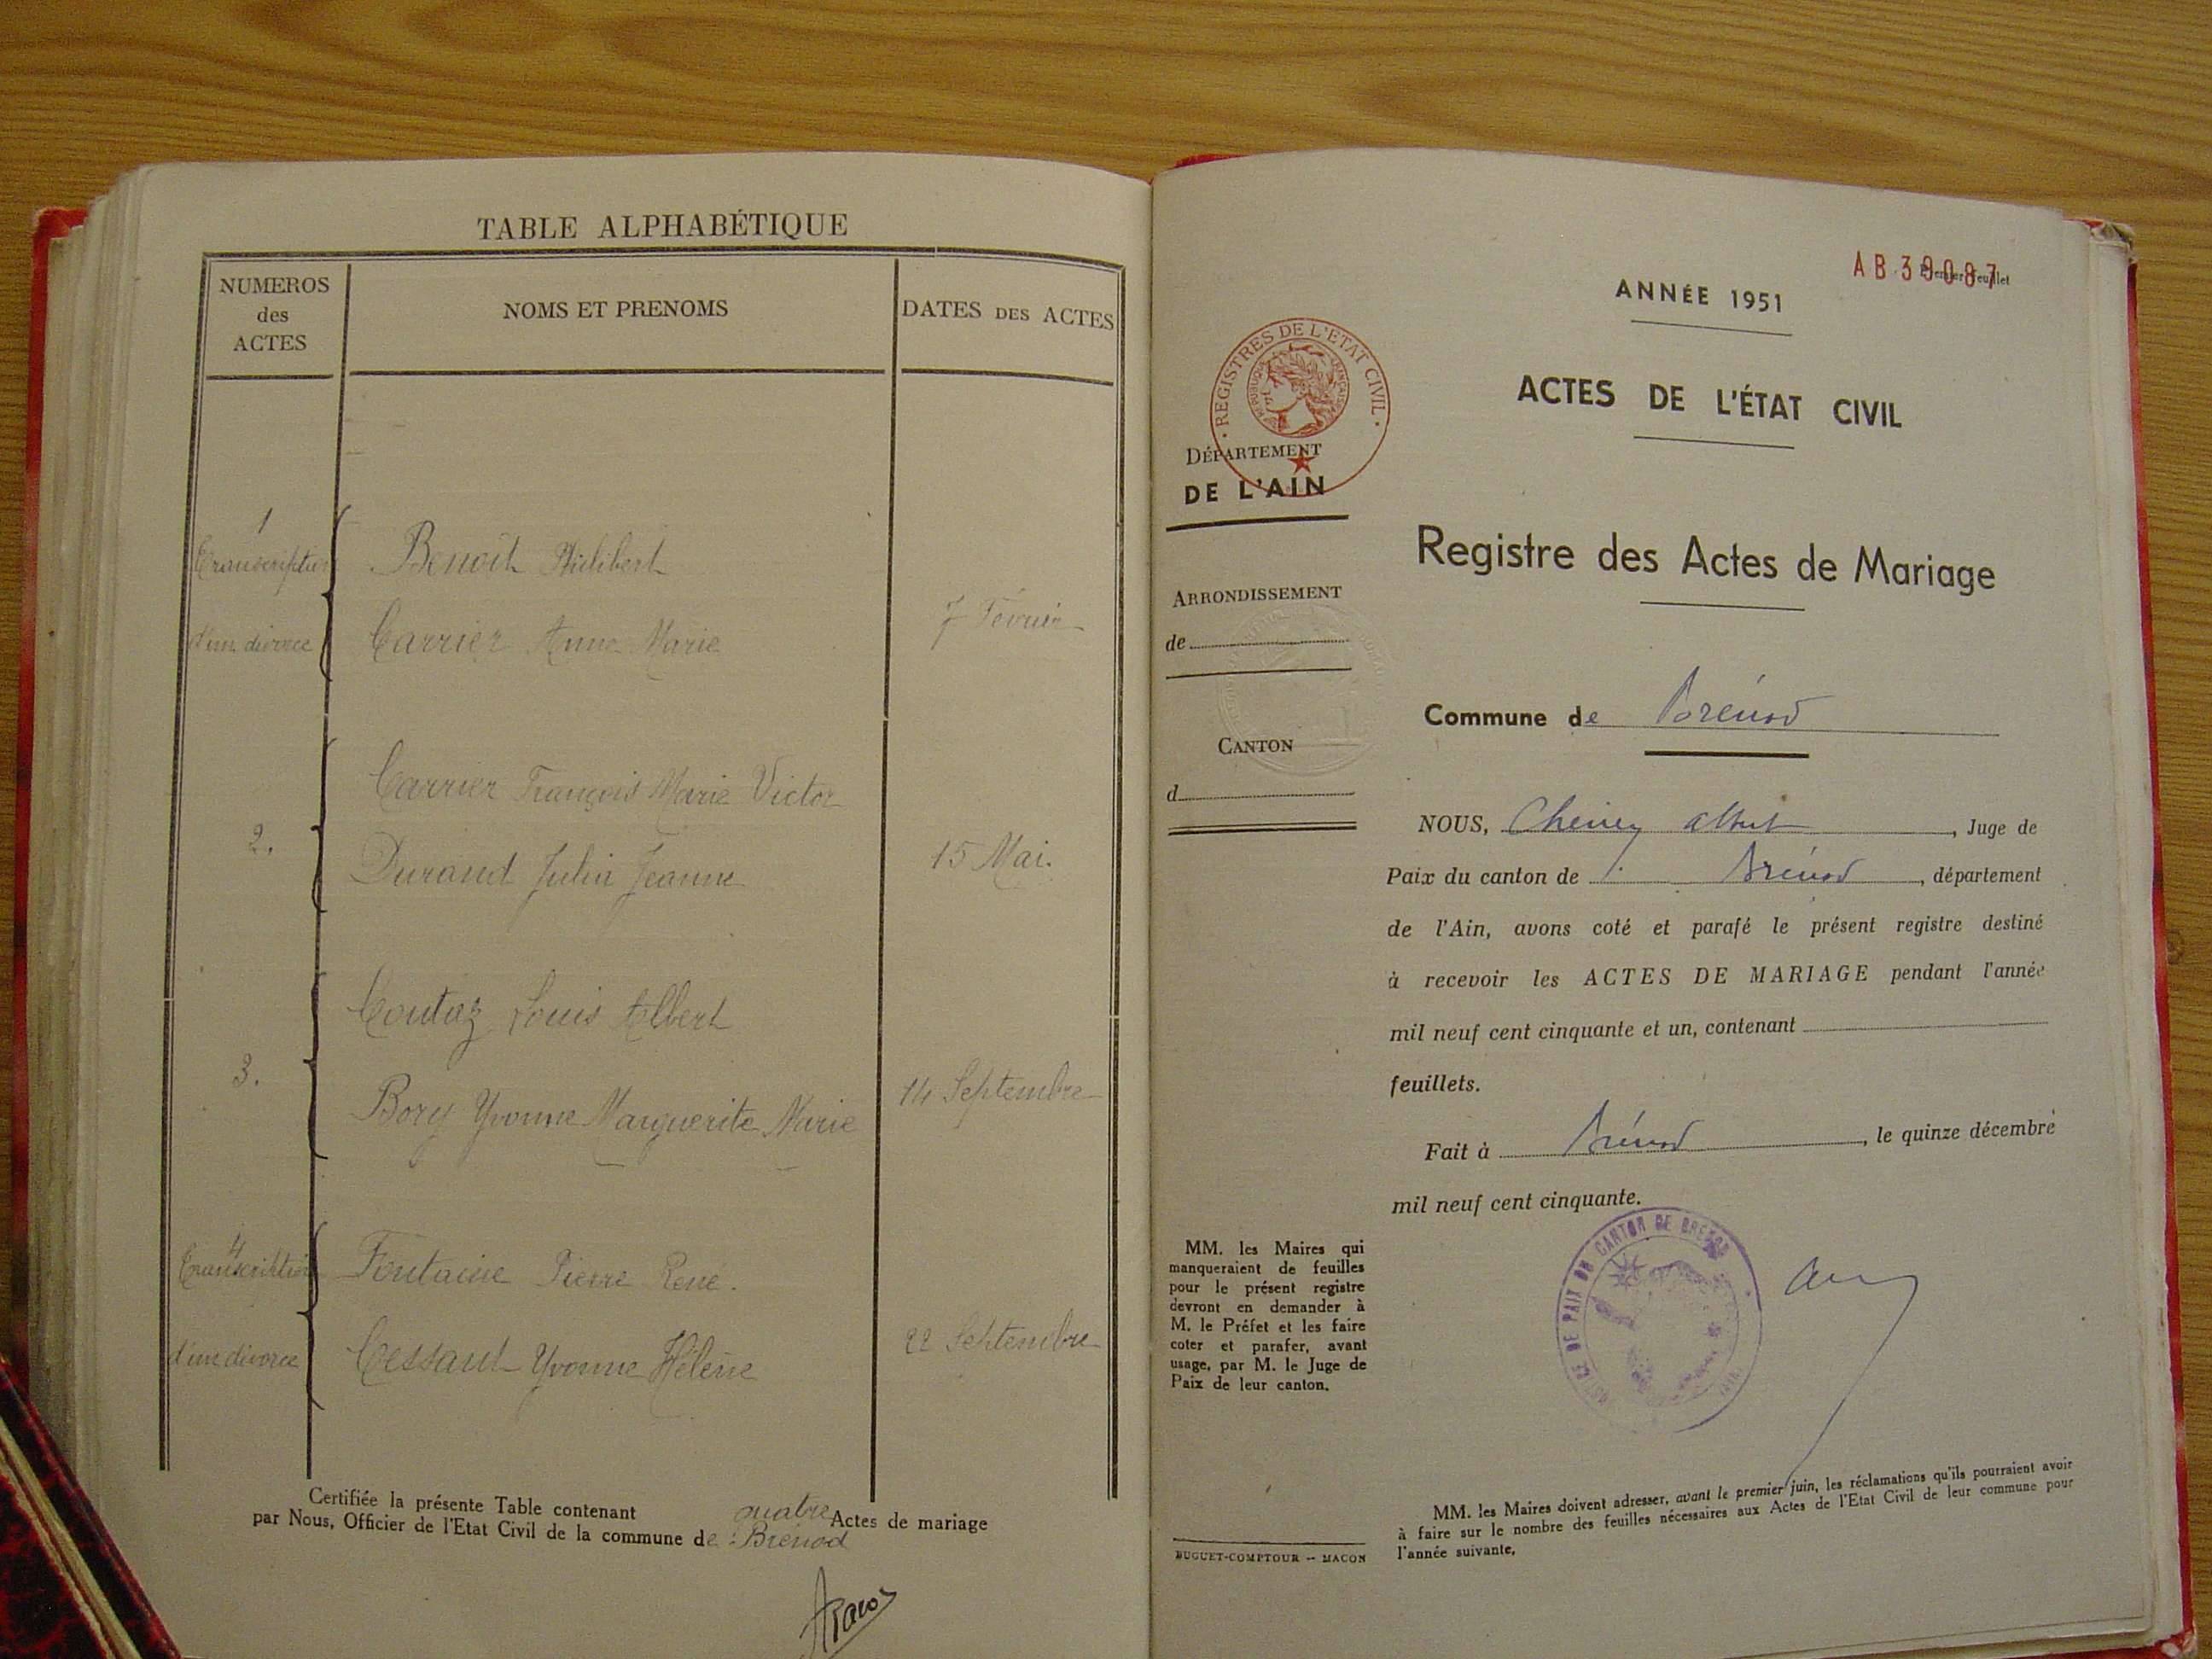 TABLE ALPHABÉTIQUE
NUMEROS
des
ACTES
NOMS ET PRENOMS
DATES DES ACTES
1
Transcription
d'un divorce
Benoît Philibert
Carrier Anne Marie
7 Février
2.
Carrier François Marie Victor
Durand Julia Jeanne
15 Mai.
3.
Coutaz Louis Albert
Bory Yvonne Marguerite Marie
14 Septembre
4
Transcription
d'un divorce
Fontaine Pierre René.
Cessaut Yvonne Hélène
22 Septembre
Certifiée la présente Table contenant quatre Actes de mariage
par Nous, Officier de l'Etat Civil de la commune de : Brenod
AB 39087
Premier feuillet
ANNÉE 1951
ACTES DE L'ÉTAT CIVIL
REGISTRES DE L'ETAT CIVIL
REPUBLIQUE FRANÇAISE
DÉPARTEMENT
DE L'AIN
ARRONDISSEMENT
de
CANTON
d
Registre des Actes de Mariage
Commune de Brénod
NOUS, Albert, Juge de
Paix du canton de Brénod, département
de l'Ain, avons coté et parafé le présent registre destiné
à recevoir les ACTES DE MARIAGE pendant l'année
mil neuf cent cinquante et un, contenant
feuillets.
Fait à Brénod, le quinze décembre
mil neuf cent cinquante.
DE PAIX DU CANTON DE BRÉNOD
MM. les Maires qui
manqueraient de feuilles
pour le présent registre
devront en demander à
M. le Préfet et les faire
coter et parafer, avant
usage, par M. le Juge de
Paix de leur canton.
MM. les Maires doivent adresser, avant le premier juin, les réclamations qu'ils pourraient avoir
à faire sur le nombre des feuilles nécessaires aux Actes de l'Etat Civil de leur commune pour
l'année suivante.
BUGUET-COMPTOUR -- MACON